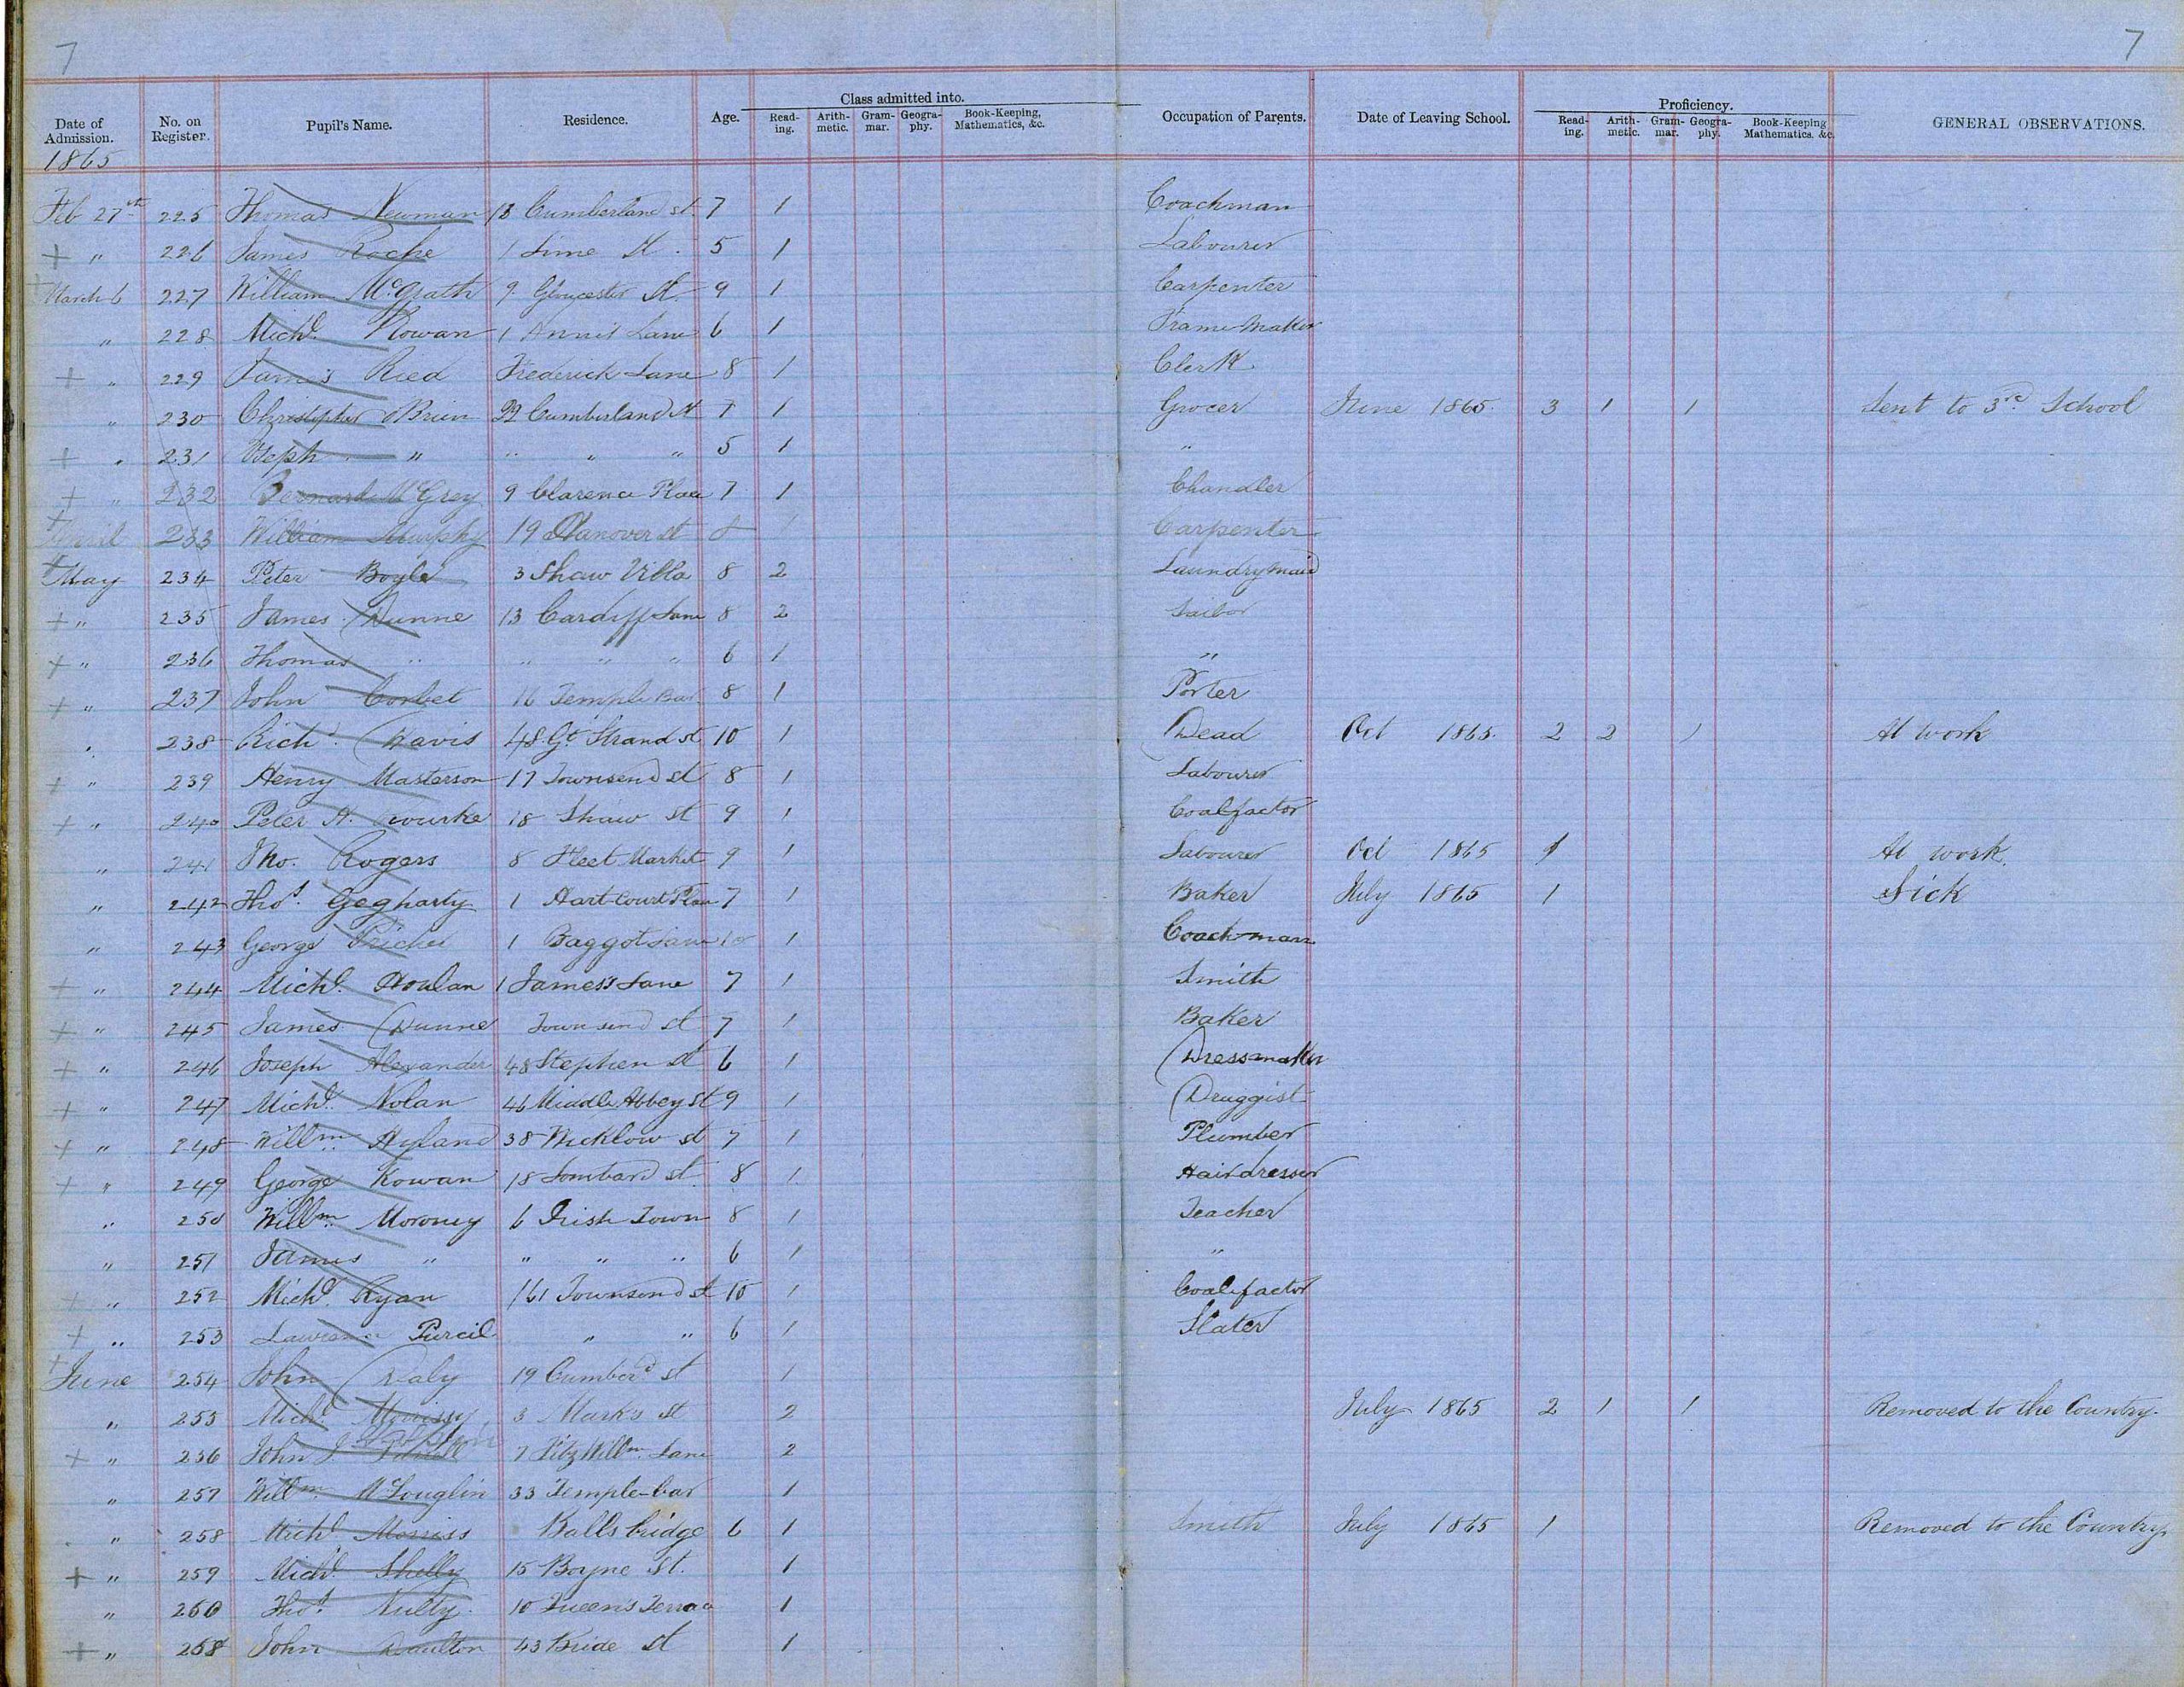 7 7
Class admitted into. Proficiency.
Date of Admission. No. on Register. Pupil's Name. Residence. Age. Read-ing. Arith-metic. Gram-mar. Geogra-phy. Book-Keeping, Mathematics, &c. Occupation of Parents. Date of Leaving School. Read-ing. Arith-metic. Gram-mar. Geogra-phy. Book-Keeping Mathematics, &c. GENERAL OBSERVATIONS.
1865
Feb 27th 225 Thomas Newman 13 Cumberland st. 7 1 Coachman
+ " 226 James Roche 1 Lime St. 5 1 Labourer
+ March 6 227 William McGrath 9 Gloucester St. 9 1 Carpenter
" 228 Michl. Rowan 1 Lane 6 1 Frame Maker
+ " 229 James Reed Frederick Lane 8 1 Clerk
" 230 Christopher OBrien 22 Cumberland St 7 1 Grocer June 1865. 3 1 1 Sent to 3rd School
+ " 231 Steph " " " " 5 1 "
+ " 232 Bernard McGrey 9 Clarence Place 7 1 Chandler
+ April 233 William Murphy 19 Hanover st 8 1 Carpenter
+ May 234 Peter Boyle 3 Shaw Villa 8 2 Laundrymaid
+ " 235 James Dunne 13 Cardiff Lane 8 2 Sailor
+ " 236 Thomas " " " " 6 1 "
+ " 237 John Corbet 16 Temple Bar 8 1 Porter
" 238 Richd. Davis 48 Gt. Strand st 10 1 Dead Oct 1865. 2 2 1 At work
+ " 239 Henry Masterson 17 Townsend st 8 1 Labourer
+ " 240 Peter A. 18 Shaw st 9 1 Coalfactor
" 241 Tho. Rogers 8 Fleet Market 9 1 Labourer Oct 1865 1 At work.
" 242 Thos. Gegharty 1 Hart Court Place 7 1 Baker July 1865 1 Sick
" 243 George 1 Baggot Lane 10 1 Coachman
+ " 244 Michl. Houlan 1 James's Lane 7 1 Smith
+ " 245 James Dunne Townsend st 7 1 Baker
+ " 246 Joseph Alexander 48 Stephen st 6 1 Dressmaker
+ " 247 Michl. Nolan 46 Middle Abbey St 9 1 Druggist
+ " 248 Willm. Hyland 38 Wicklow st 7 1 Plumber
+ " 249 George Rowan 18 Lombard st. 8 1 Hairdresser
" 250 Willm. Moroney 6 Irish Town 8 1 Teacher
" 251 James " " " " 6 1 "
+ " 252 Michl. Ryan 161 Townsend st 10 1 Coalfactor
+ " 253 Lawrence Purcil " " 6 1 Slater
+ June 254 John Daly 19 Cumberd. st 1
" 255 Michl. Morrissy 3 Mark's st 2 July 1865 2 1 1 Removed to the Country.
+ " 256 John J. 7 FitzWillm. Lane 2
" 257 Willm. McLouglin 33 Temple-bar 1
" 258 Michl. Morriss Balls bridge 6 1 Smith July 1865 1 Removed to the Country.
+ " 259 Michl. Shelly 15 Boyne St. 1
" 260 Thos. Nulty. 10 Queen's Terrace 1
+ " 258 John Daulton 43 Bride st 1